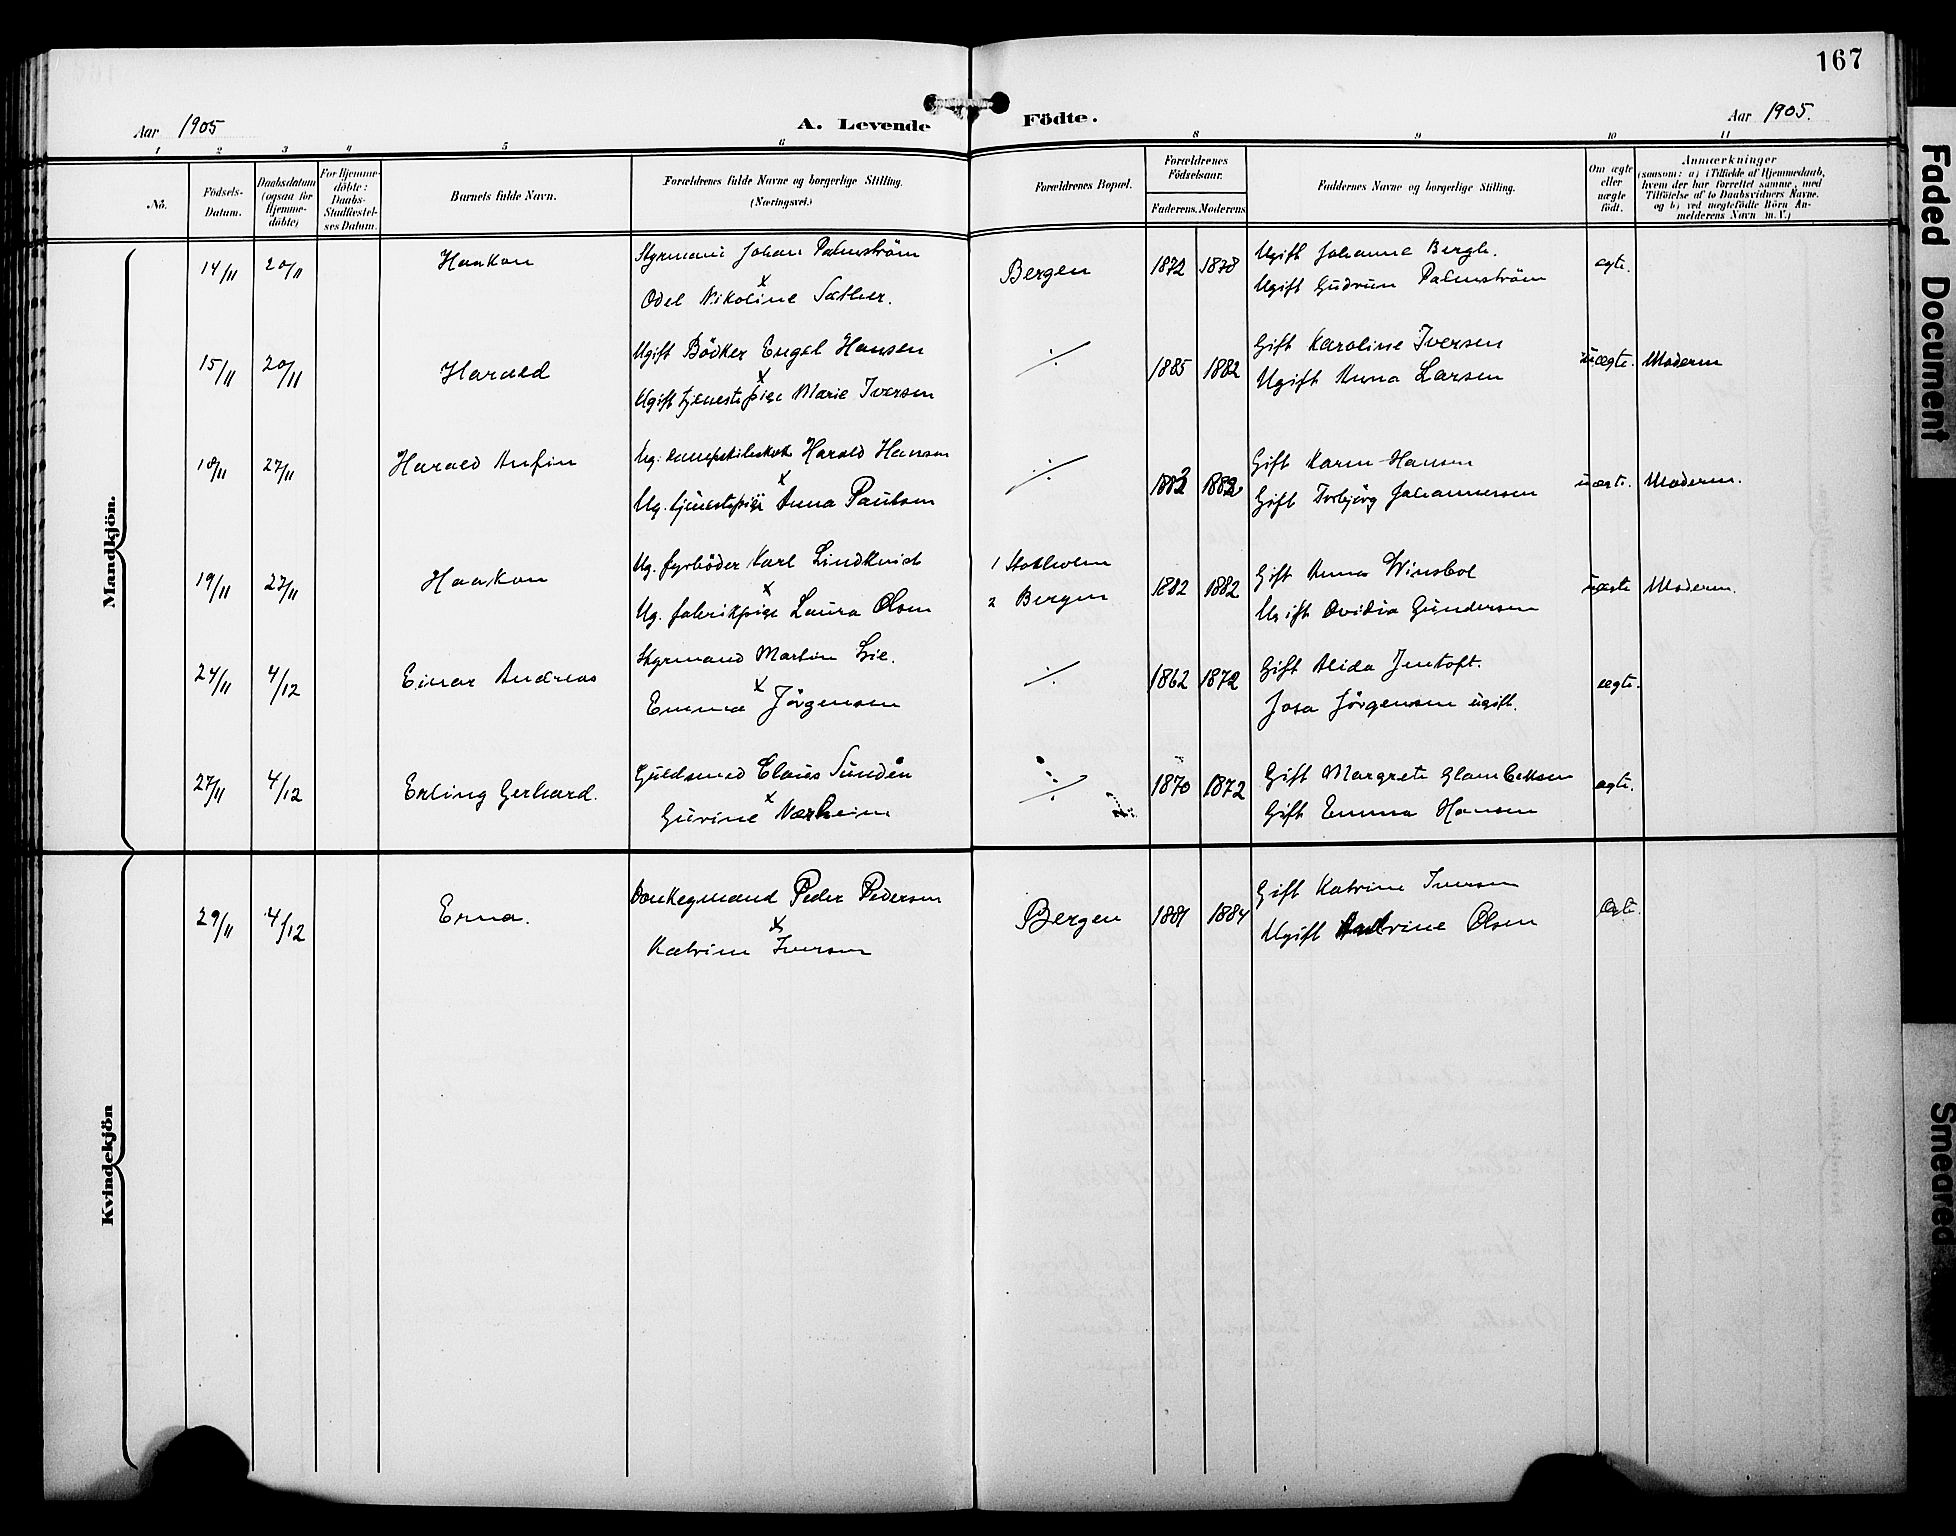 167
Aar 1905
A. Levende Födte.
Aar 1905.
1 2 3 4 5 6 8 9 10 11
No.
Födsels-
Datum.
Daabsdatum
(ogsaa for
Hjemme-
döbte)
For Hjemme-
döbte:
Daabs-
Stadfæstel-
ses Datum.
Barnets fulde Navn.
Forældrenes fulde Navne og borgerlige Stilling.
(Næringsvei.)
Forældrenes Bopæl.
Forældrenes
Födselsaar.
Faderens. Moderens
Faddernes Navne og borgerlig Stilling.
Om ægte
eller
uægte
födt.
Anmærkninger
(saasom: a) i Tilfælde af Hjemmedaab,
hvem der har forrettet samme, med
Tilföielse af to Daabsvidners Navne.
og b) ved uægtefödte Börn An-
melderens Navn m. V.)
Mandkjön.
14/11 20/11 Haakon
Styrmand Johan Palmström
x
Odel Nikoline Sæther.
Bergen 1872 1878
Ugift Johanne Bergh.
Ugift Gudrun Palmström
ægte.
15/11 20/11 Harald
Ugift Bödker Engel Hansen
x
Ugift tjenestepige Marie Iversen
÷ 1885 1882
Gift Karoline Iversen
Ugift Anna Larsen
uægte. Moderen
18/11 27/11 Harald Anfin
Ug. Harald Hansen
x
Ug. tjenestepige Anna Paulsen
÷ 1882 1882
Gift Karen Hansen
Gift Torbjörg Johannessen
uægte. Moderen.
19/11 27/11 Haakon
Ug. fyrböder Karl Lindkvist
x
Ug. fabrikpige Laura Olsen
1 Stokholm
2 Bergen
1882 1882
Gift Anna
Ugift Ovidia Gundersen
uægte Moderen.
24/11 4/12 Einar Andreas
Styrmand Martin Lie.
x
Emma Jörgensen
÷ 1862 1872
Gift Alida Jentoft.
Josa Jörgensen ugift.
ægte.
27/11 4/12 Erling Gerhard.
Guldsmed Claus Sundén
x
Gurine Nærheim
÷ 1870 1872
Gift Margrete
Gift Emma Hansen
ægte.
Kvindekjön
29/11 4/12 Erna.
Donkeymand Peder Pedersen
x
Katrine Iversen
Bergen 1881 1884
Gift Katrine Iversen
Ugift Olsen
ægte.
Faded Document
Smeared